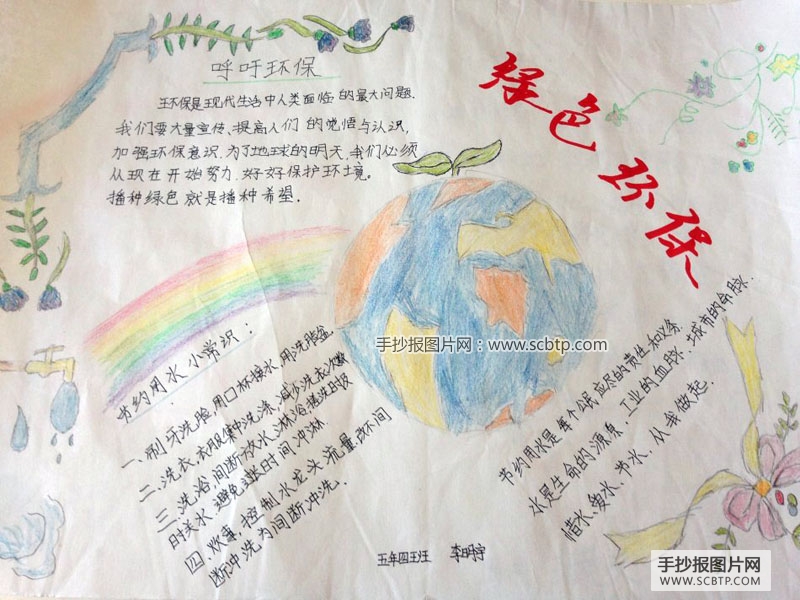 呼吁环保
环保是现代生活中人类面临的最大问题.
我们要大量宣传、提高人们的觉悟与认识,
加强环保意识.为了地球的明天,我们必须
从现在开始努力,好好保护环境。
播种绿色就是播种希望.
绿色环保
节约用水小常识:
一、刷牙洗脸,用口杯接水,用洗脸盆.
二、洗衣,衣服集中洗涤,减少洗衣次数
三、洗浴,间断放水淋浴,搓洗时及
时关水,避免过长时间冲淋
四、炊事,控制水龙头流量,改不间
断冲洗为间断冲洗.
节约用水是每个公民应尽的责任和义务
水是生命的源泉、工业的血脉、城市的命脉.
惜水、爱水、节水、从我做起.
五年四班 李明宇
手抄报图片网:www.scbtp.com
手抄报图片网
WWW.SCBTP.COM